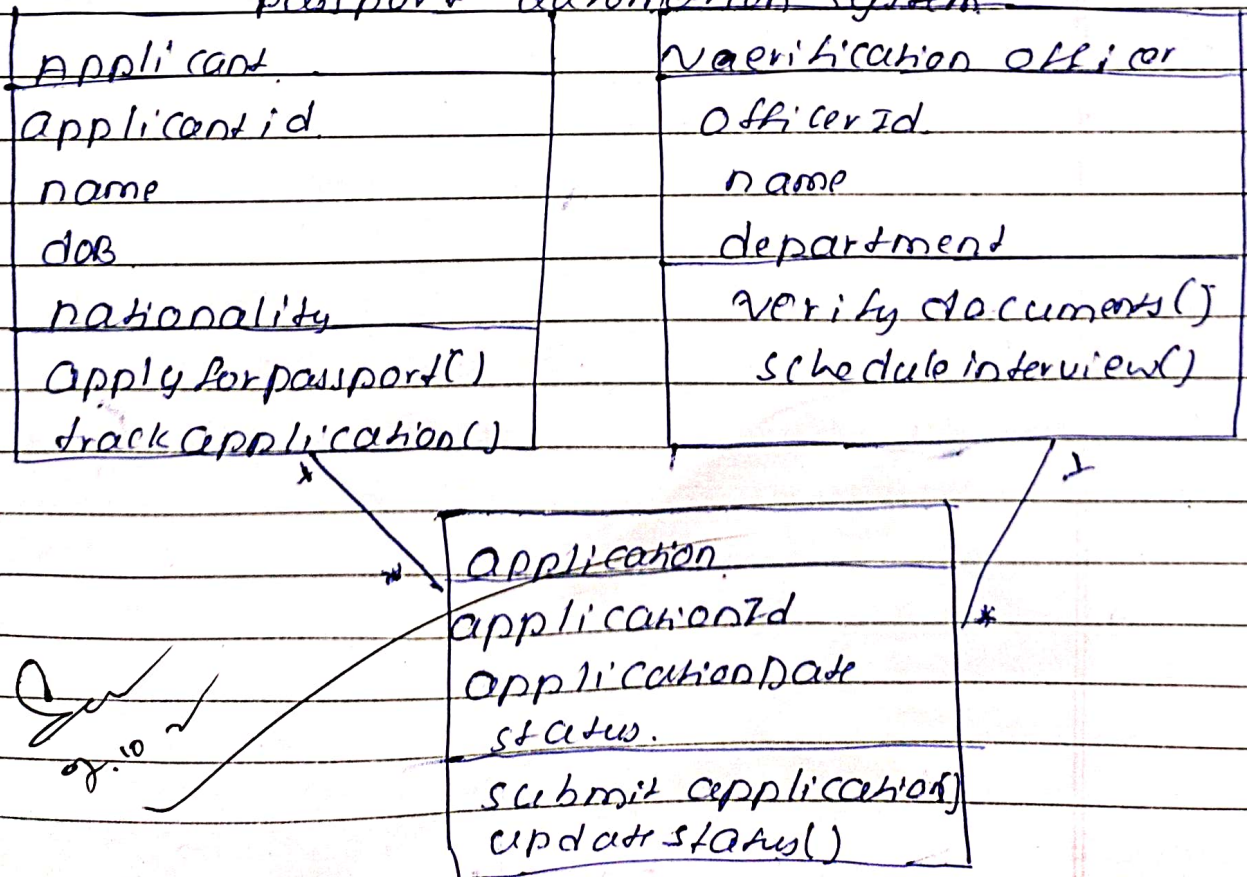 passport automation system
Applicant
applicant id
name
dOB
nationality
apply for passport()
track application()
Vaerification officer
Officer Id
name
department
verify documents()
schedule interview()
*
1
*
application
applicationId
applicationDate
status.
submit application()
update status()